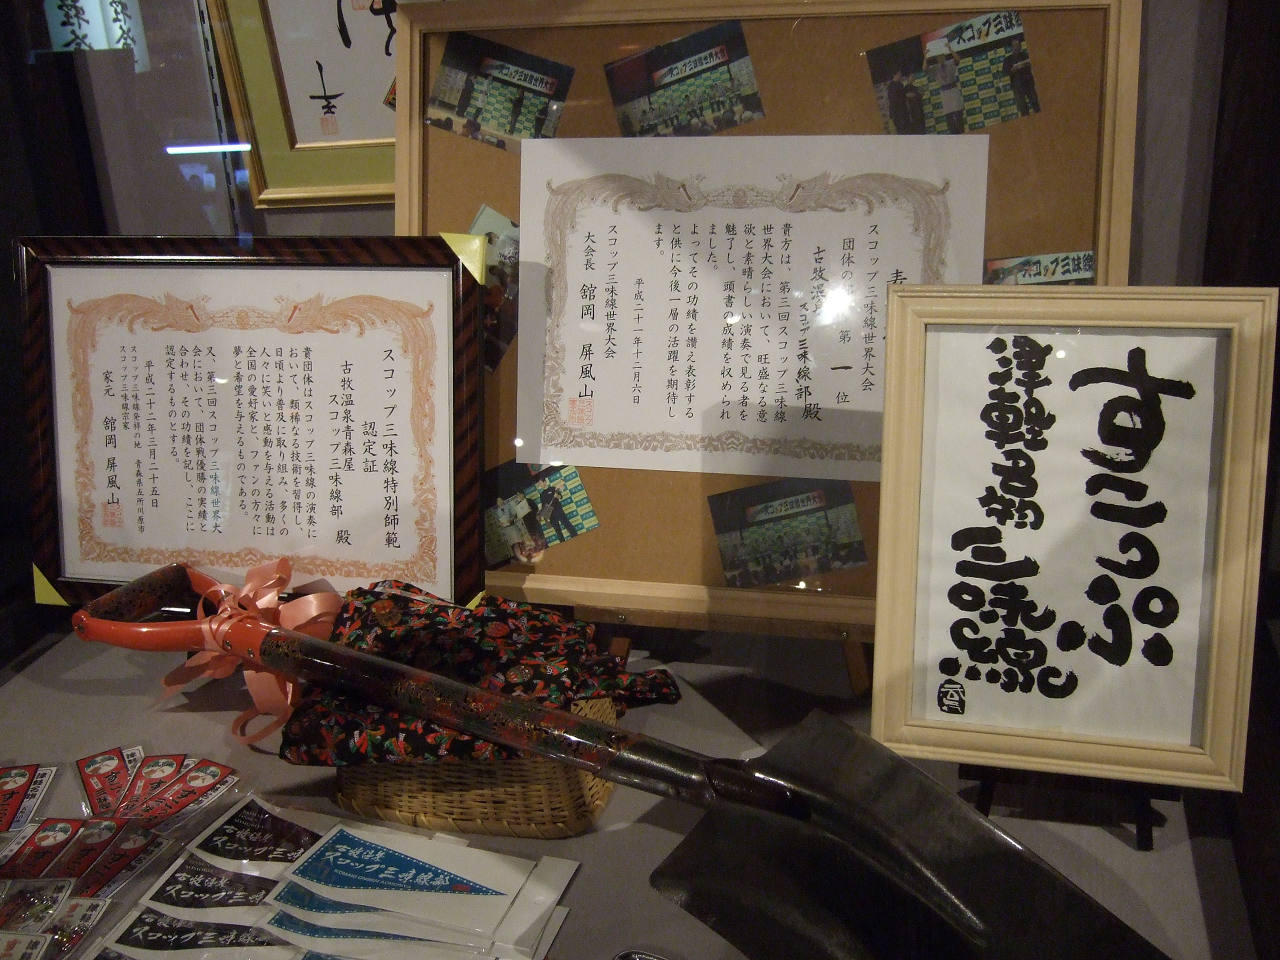 スコップ三味線特別師範
認定証
古牧温泉青森屋
スコップ三味線部 殿
貴団体はスコップ三味線の演奏に
おいて、類稀なる技術を習得し、
日頃より普及に取り組み、多くの
人々に笑いと感動を与える活動は
全国の愛好家と、ファンの方々に
夢と希望を与えるものである。
又、第三回スコップ三味線世界大
会において、団体戦優勝の実績と
合わせ、その功績を記し、ここに
認定するものとする。
平成二十二年三月二十五日
スコップ三味線発祥の地 青森県五所川原市
スコップ三味線宗家
家元 舘岡 屏風山
スコップ三味線世界大会
団体の
第一位
スコップ三味線部殿
貴方は、第三回スコップ三味線
世界大会において、旺盛なる意
欲と素晴らしい演奏で見る者を
魅了し、頭書の成績を収められ
ました。
よってその功績を讃え表彰する
と供に今後一層の活躍を期待し
ます。
平成二十一年十二月六日
スコップ三味線世界大会
大会長 舘岡 屏風山
すこっぷ
三味線
スコップ三味線世界大会
スコップ三味線世界大
スコップ三味線
古牧温泉
スコップ三味線部
古牧温泉
スコップ三味線部